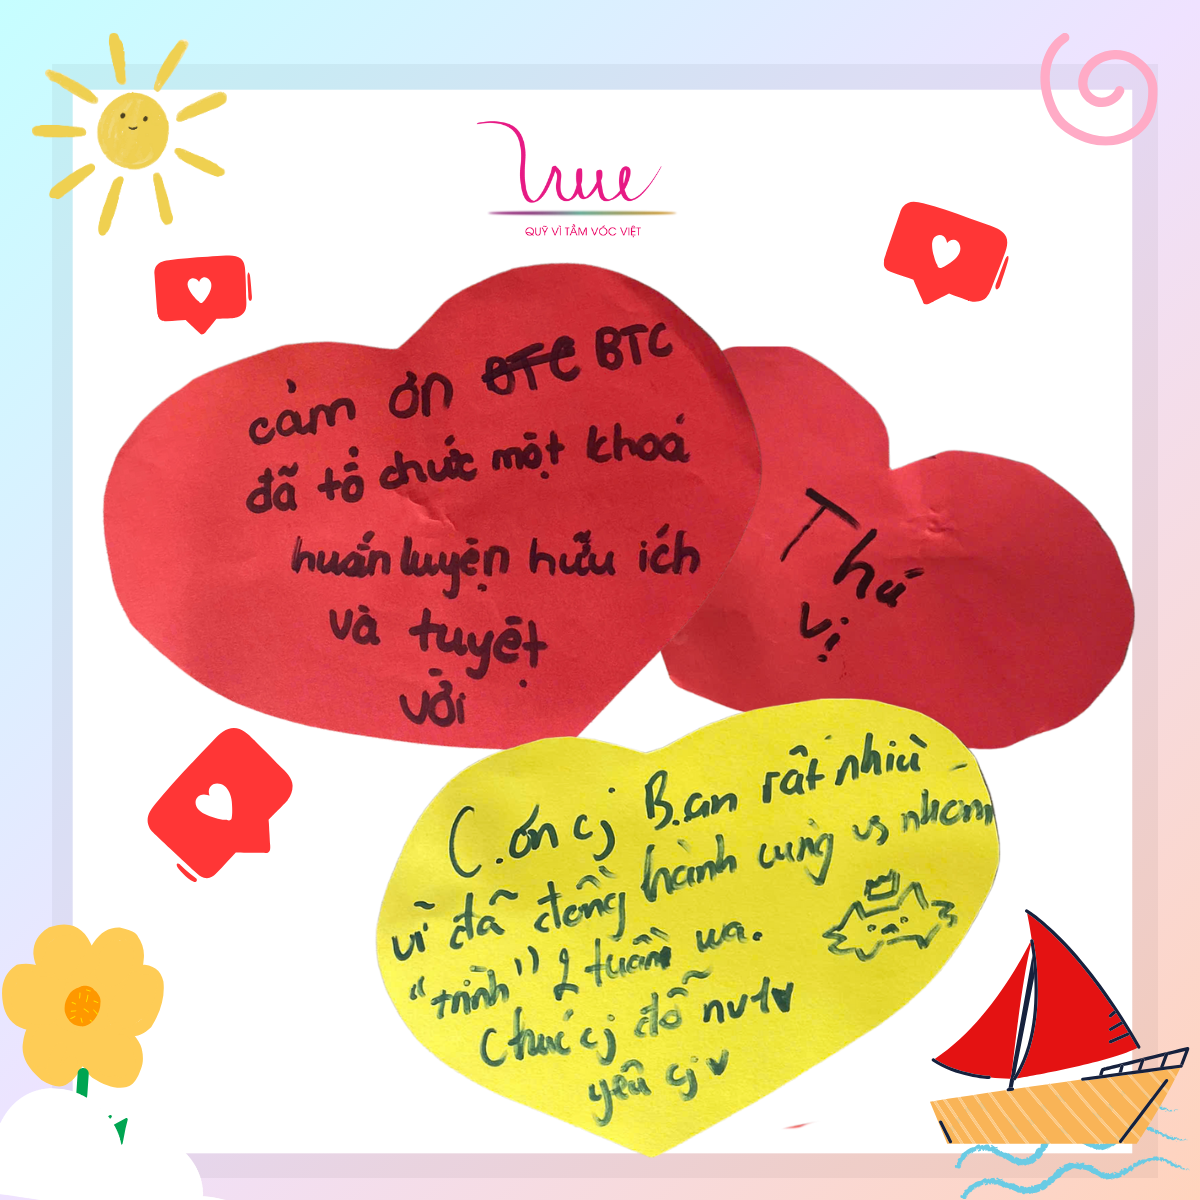 True
QUỸ VÌ TẦM VÓC VIỆT
cảm ơn BTC BTC
đã tổ chức một khoá
huấn luyện hữu ích
và tuyệt
vời
Thú
vị
C.ơn cj B.an rất nhiù
vì đã đồng hành cùng vs nhóm
"trình" 2 tuần wa.
Chúc cj đỗ nv1
yêu cj